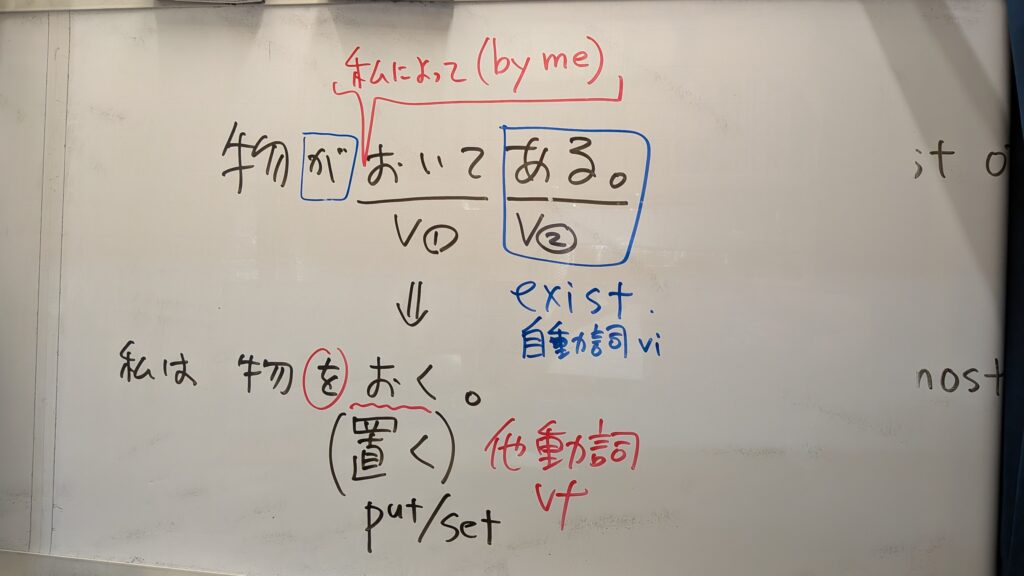 私によって (by me)
物がおいてある。
V① V②
it
exist.
自動詞 vi
私は 物をおく。
(置く) 他動詞
put/set vt